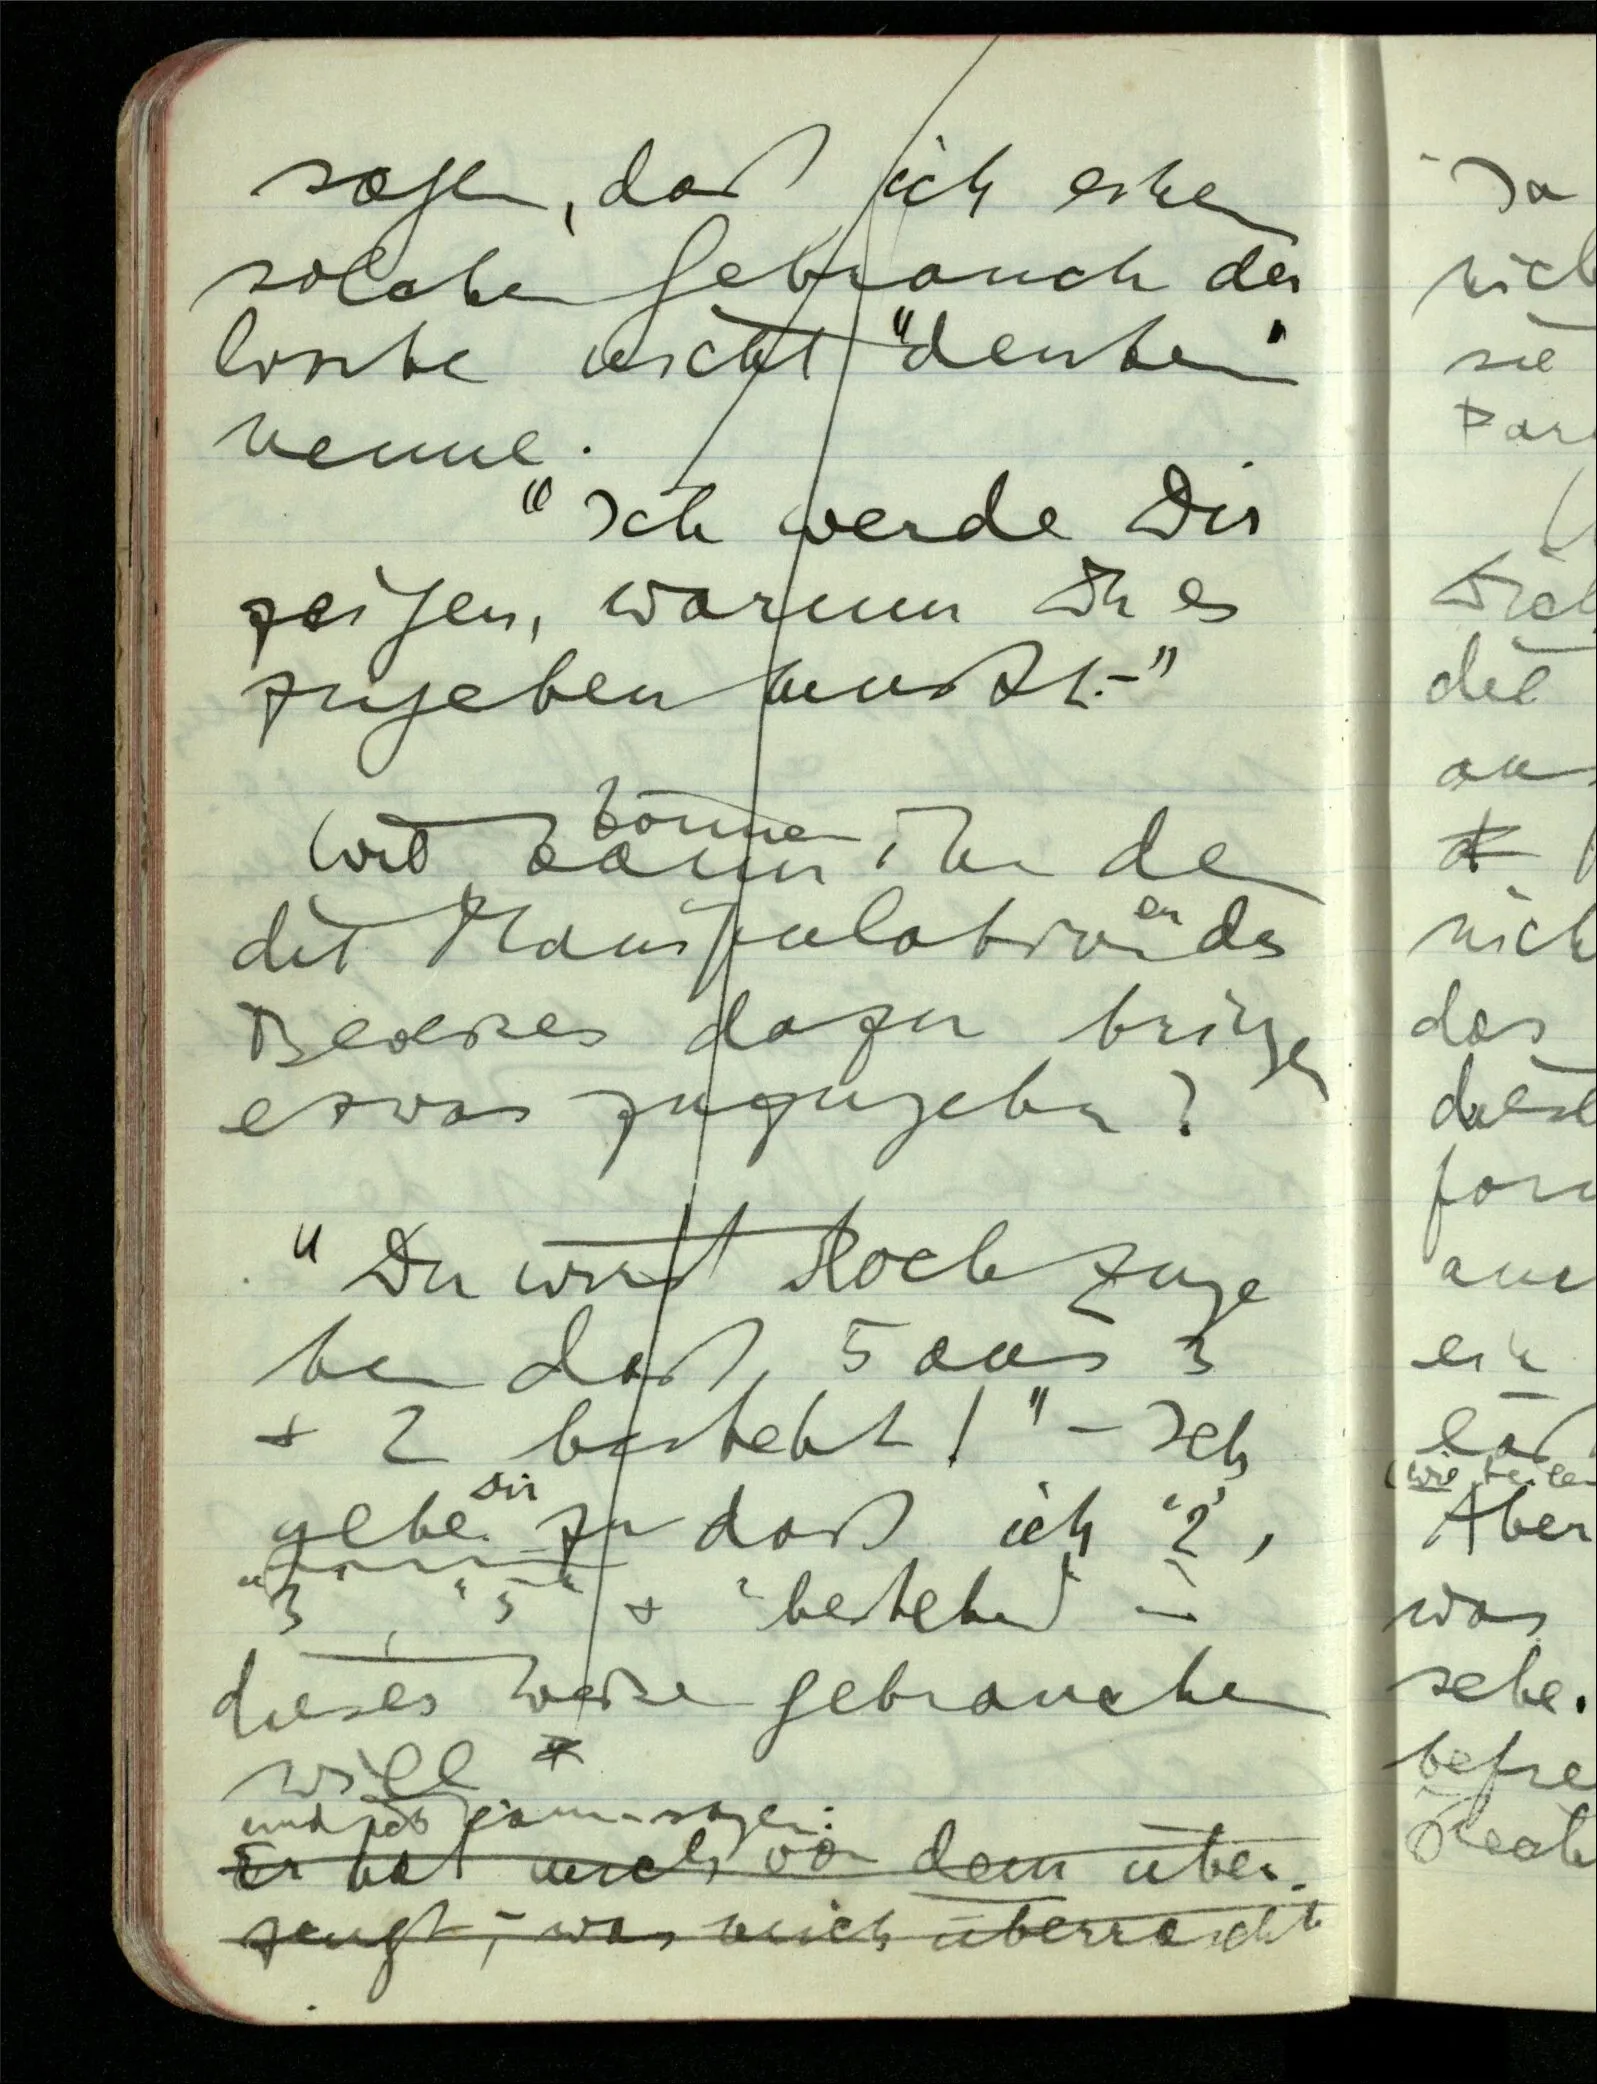 sagen, daß ich einen
solchen Gebrauch der
Worte nicht "denken"
nenne.
"Ich werde Dir
zeigen, warum Du es
zugeben mußt.–"
können
Wie kann ihn denn
die Manipulationen des
Beweises dazu bringen
etwas zuzugeben?
"Du wirst doch zuge
ben daß 5 aus 3
+ 2 besteht!" – Ich
Dir
gebe zu daß ich '2',
"3", "5" + "bestehen"
dieser Weise gebrauchen
will
und sagen:
Er hat mich von dem über-
zeugt, – was mich überrascht
Ja
nich
sie
Para
Dich
die
an
nich
das
diese
form
auch
ein
Aber
was
sehe.
befre
Rech